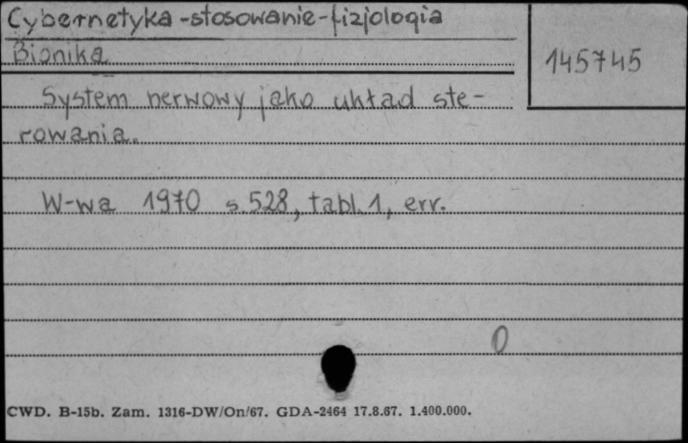 Cybernetyka - stosowanie - fizjologia
Bionika
145745
System nerwowy jako układ ste-
rowania.
W-wa 1970 s. 528, tabl. 1, err.
0
CWD. B-15b. Zam. 1316-DW/On/67. GDA-2464 17.8.67. 1.400.000.